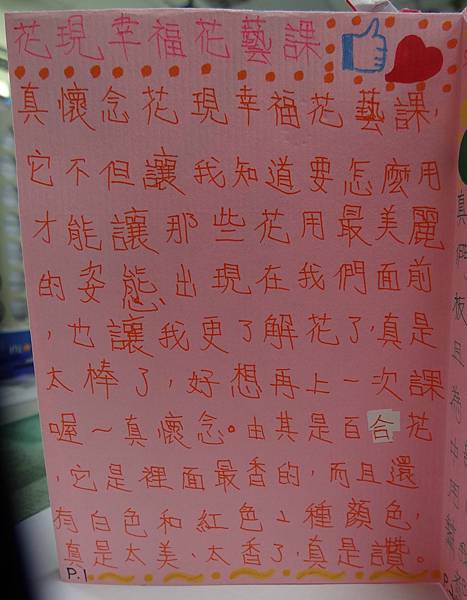 花現幸福花藝課
真懷念花現幸福花藝課,
它不但讓我知道要怎麼用
才能讓那些花用最美麗
的姿態出現在我們面前
,也讓我更了解花了,真是
太棒了,好想再上一次課
喔～真懷念。由其是百合花
,它是裡面最香的,而且還
有白色和紅色2種顏色,
真是太美、太香了,真是讚。
P.1